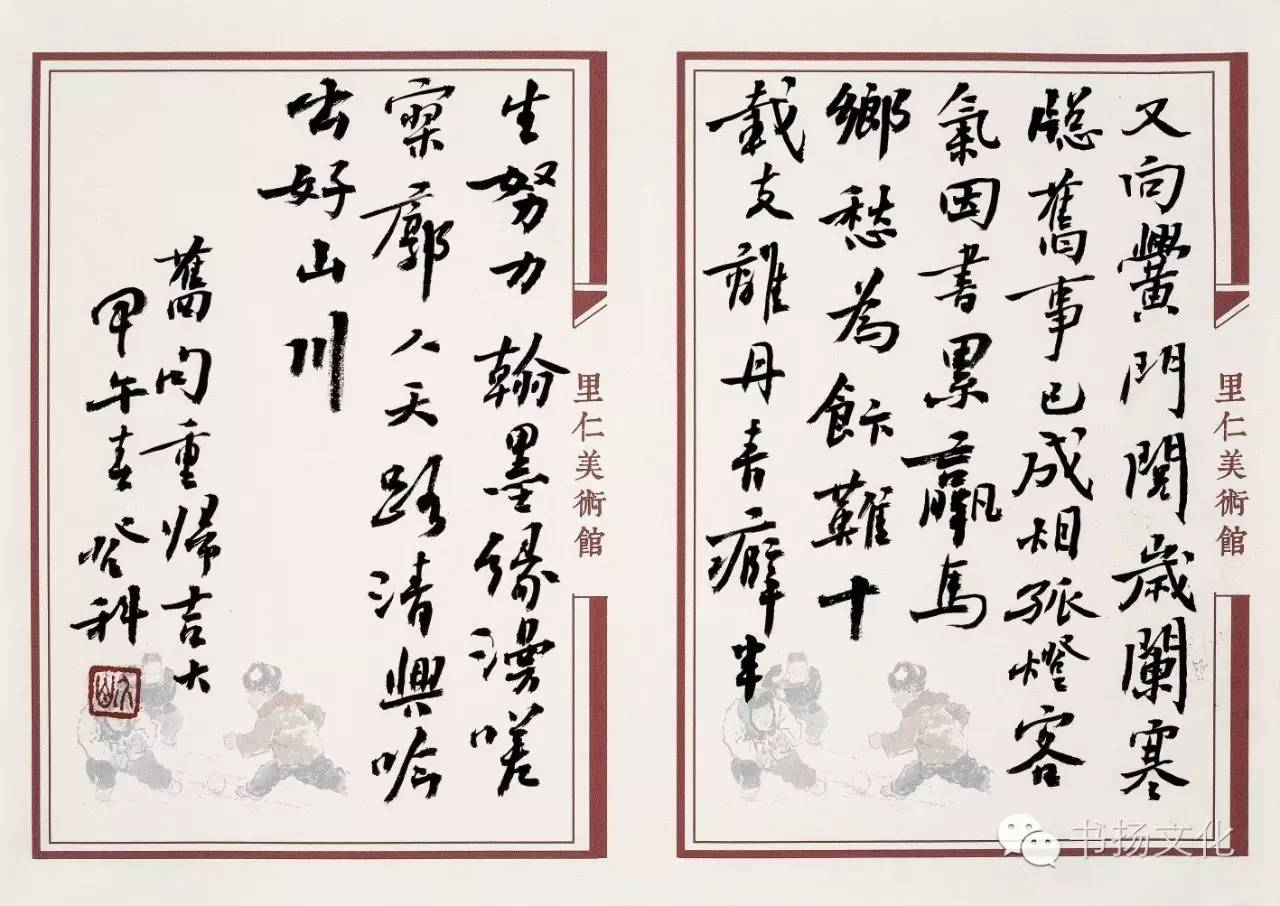 又向黌門閱歲闌寒
牕舊事已成相孤燈客
氣因書累羸馬
鄉愁為飰難十
載支離丹青癖半
里仁美術館
生努力翰墨緣漫嗟
寥廓人天路清興吟
出好山川
舊句重歸吉大
甲午春登科
里仁美術館
书扬文化